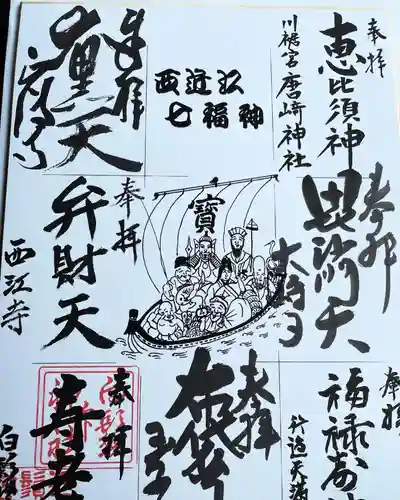 奉拝
恵比須神
川裾宮 唐崎神社
西近江
七福神
奉拝
大黒天
奉拝
毘沙門天
大崎寺
寶
奉拝
弁財天
西江寺
奉拝
福禄寿
行過天満
奉拝
布袋尊
奉拝
寿老
白